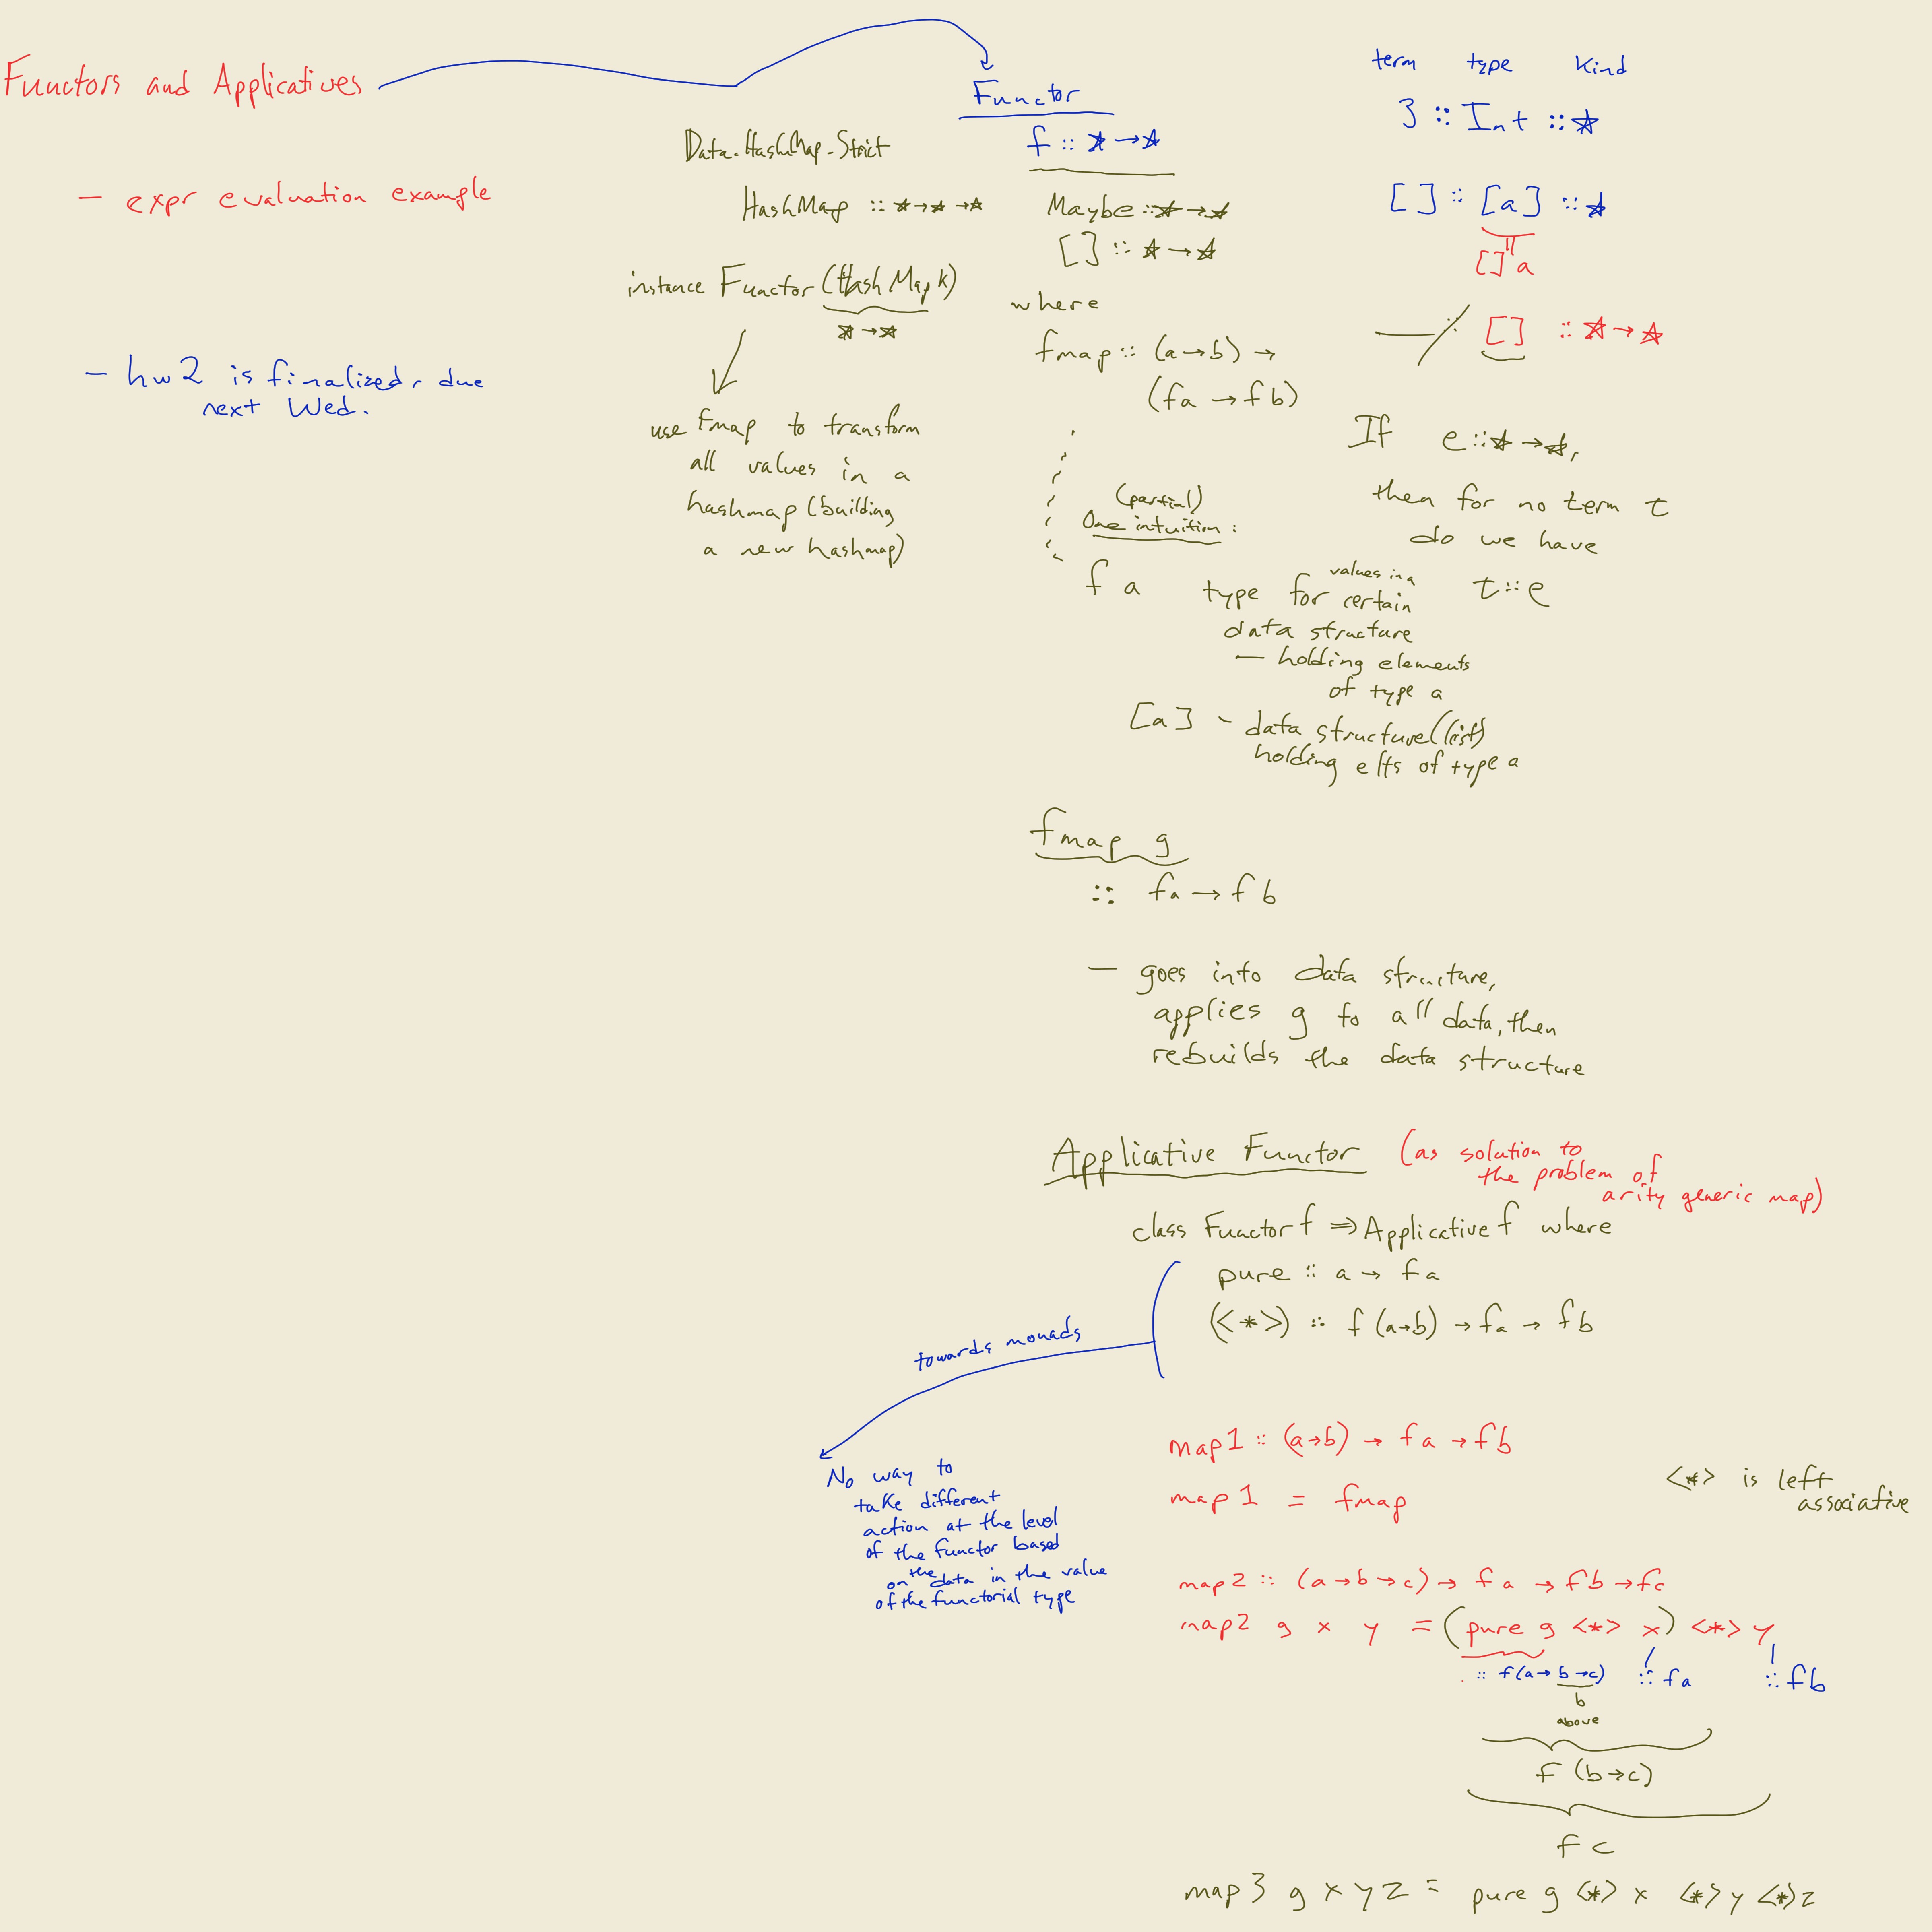 Functors and Applicatives
- expr evaluation example
- hw2 is finalized, due
next Wed.
Data.HashMap.Strict
HashMap :: ☆→☆→☆
instance Functor (HashMap k)
☆→☆
use fmap to transform
all values in a
hashmap (building
a new hashmap)
Functor
f :: ☆→☆
Maybe :: ☆→☆
[] :: ☆→☆
where
fmap :: (a→b) →
(f a → f b)
(partial)
One intuition:
f a type for values in a certain
data structure
- holding elements
of type a
[a] - data structure (list)
holding elts of type a
term type kind
3 :: Int :: ☆
[] :: [a] :: ☆
[] a
:: [] :: ☆→☆
If e :: ☆→☆,
then for no term t
do we have
t :: e
fmap g
:: f a → f b
- goes into data structure,
applies g to all data, then
rebuilds the data structure
Applicative Functor (as solution to
the problem of
arity generic map)
class Functor f ⇒ Applicative f where
pure :: a → f a
(<*>) :: f (a→b) → f a → f b
towards monads
No way to
take different
action at the level
of the functor based
on the data in the value
of the functorial type
map1 :: (a→b) → f a → f b
map1 = fmap
<*> is left
associative
map2 :: (a→b→c) → f a → f b → f c
map2 g x y = (pure g <*> x) <*> y
:: f(a→b→c) :: f a :: f b
b
above
f (b→c)
f c
map3 g x y z = pure g <*> x <*> y <*> z